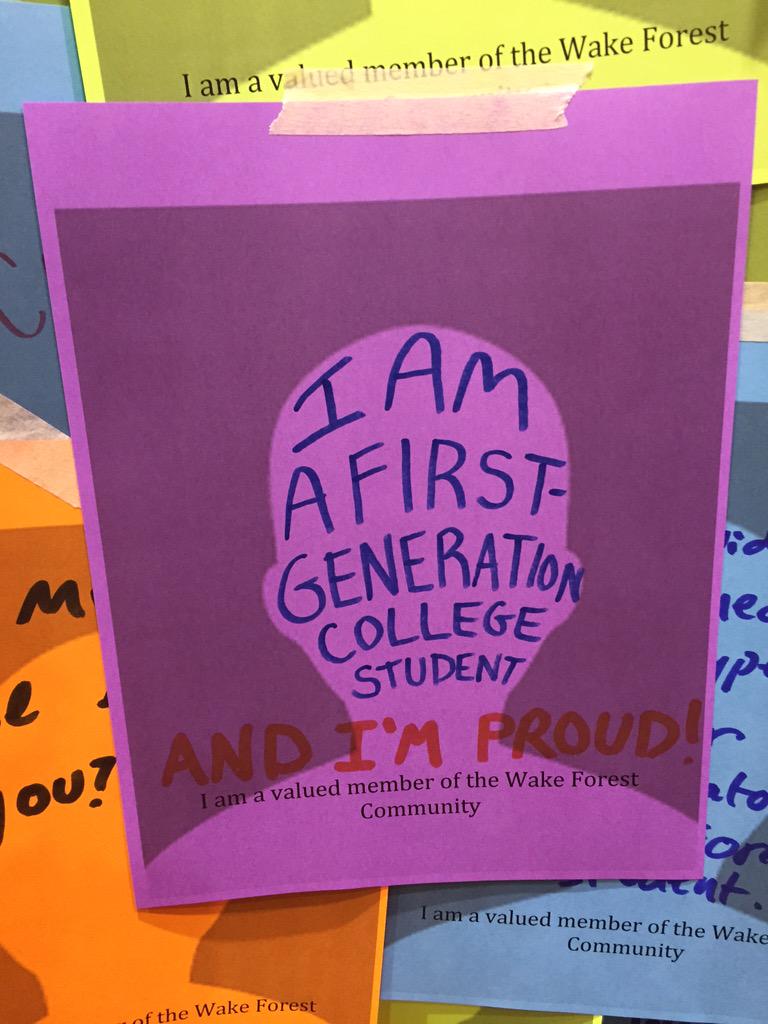 I am a valued member of the Wake Forest
I AM
A FIRST-
GENERATION
COLLEGE
STUDENT
AND I'M PROUD!
I am a valued member of the Wake Forest
Community
you?
student.
I am a valued member of the Wake
Community
of the Wake Forest